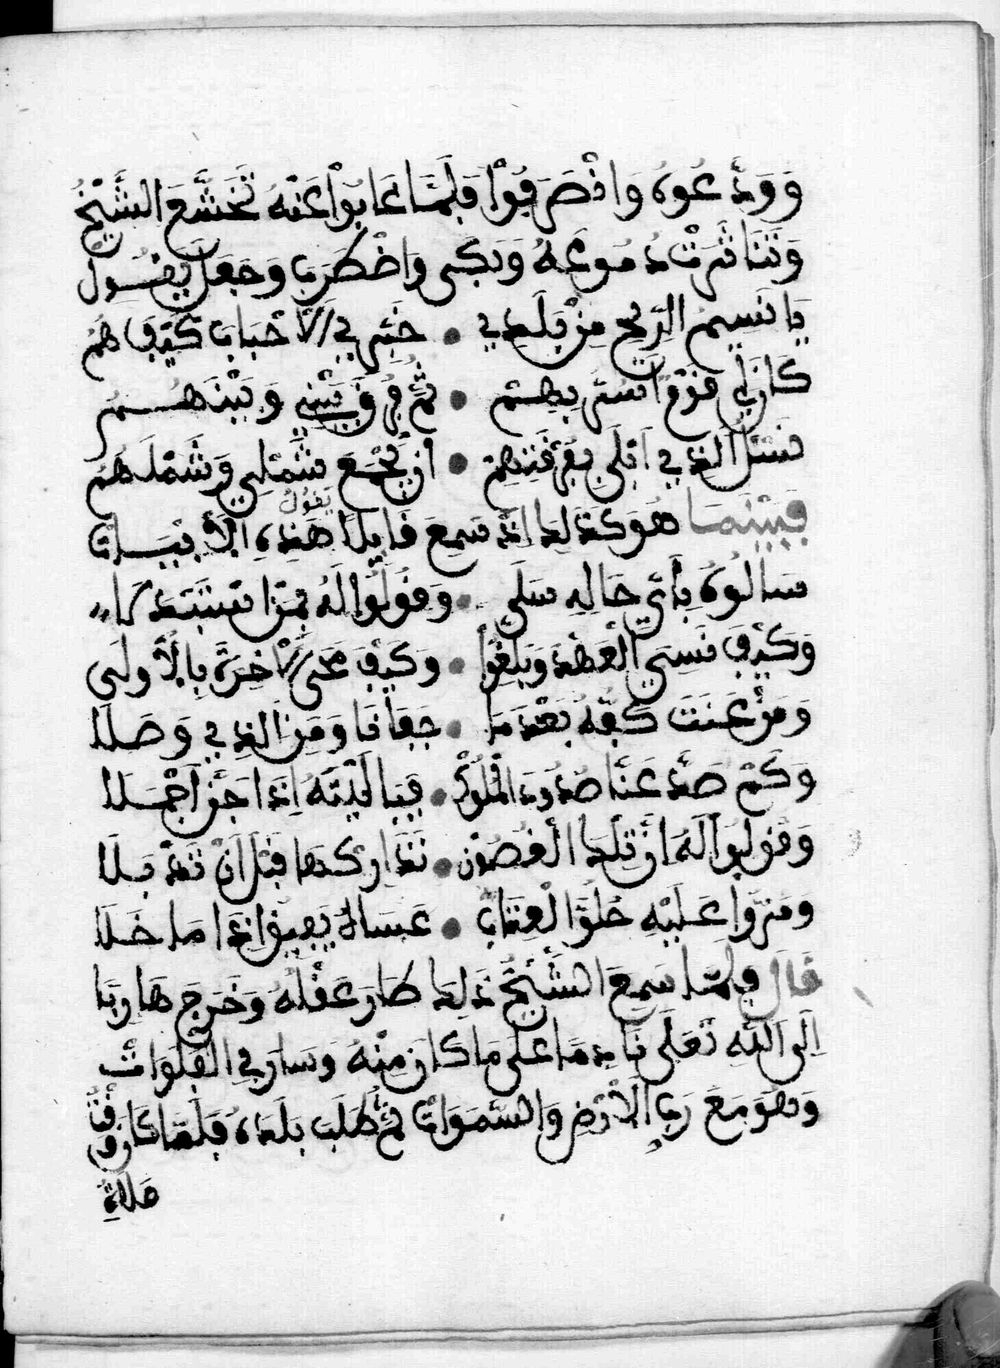 وَوَدَّعُوهُ وَانْصَرَفُوْا فَلَمَّا غَابُوْا عَنْهُ تَخَشَّعَ الشَّيْخُ
وَتَنَاثَرَتْ دُمُوعُهُ وَبَكَى وَاضْطَرَبَ وَجَعَلَ يَقُولُ
يَا نَسِيمَ الرِّيحِ مِنْ بَلَدِي • خَبِّرِي الْأَحْبَابَ كَيْفَ هُمُ
كَانَ لِي قَوْمٌ أُسَرُّ بِهِمْ • ثُمَّ فُرِّقَ بَيْنِي وَبَيْنَهُمُ
نَسْئَلُ الَّذِي ابْلَى بِفُرْقَتِهِمْ • انْ يَجْمَعَ شَمْلِي وَشَمْلَهُمُ
فَبَيْنَمَا هُوَ كَذَلِكَ اِذْ سَمِعَ قَايِلًا يَقُولُ هَذِهِ الْأَبْيَاتَ
سَالُوهُ بِأَيِّ حَالِهِ سَلَى • وَقُولُوا لَهُ
وَكَيْفَ نَسِيَ الْعَهْدَ • وَكَيْفَ مَحَى الْأَخِرَةَ بِالْأُولَى
وَمَنْ كَفُّهُ بَعْدَمَا • جَفَانَا وَمَنْ الَّذِي وَصَلَا
وَكَمْ صَدَّ عَنَّا صُدُودَ الْمُلُوكِ • فَيَا لَيْتَهُ اِذَا أَجْمَلَا
وَقُولُوا لَهَ انَّ تِلْكَ الْغُصُونَ • تَدَارَكْهَا قَبْلَ انْ تَذْبَلَا
وَمُرُّوا عَلَيْهِ حُلْوَ الْعِتَابِ • عَسَاهُ يَفِيقُ اِذَا مَا خَلَا
قَالَ فَلَمَّا سَمِعَ الشَّيْخُ ذَلِكَ طَارَ عَقْلُهُ وَخَرَجَ هَارِبًا
اِلَى اللَّهِ تَعَلَى نَادِمًا عَلَى مَا كَانَ مِنْهُ وَسَارَ فِي الْفَلَوَاتْ
وَهُوَ مَعَ رَبِّ الْأَرْضِ وَالسَّمَوَاتِ ثُمَّ طَلَبَ بَلَدَهُ فَلَمَّا كَانَ وَقْتُ
صَلَاةِ